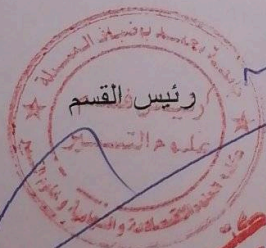 جامعة محمد بوضياف المسيلة
رئيس القسم
رئيس قسم
علوم التسيير
كلية العلوم الاقتصادية و التجارية و علوم